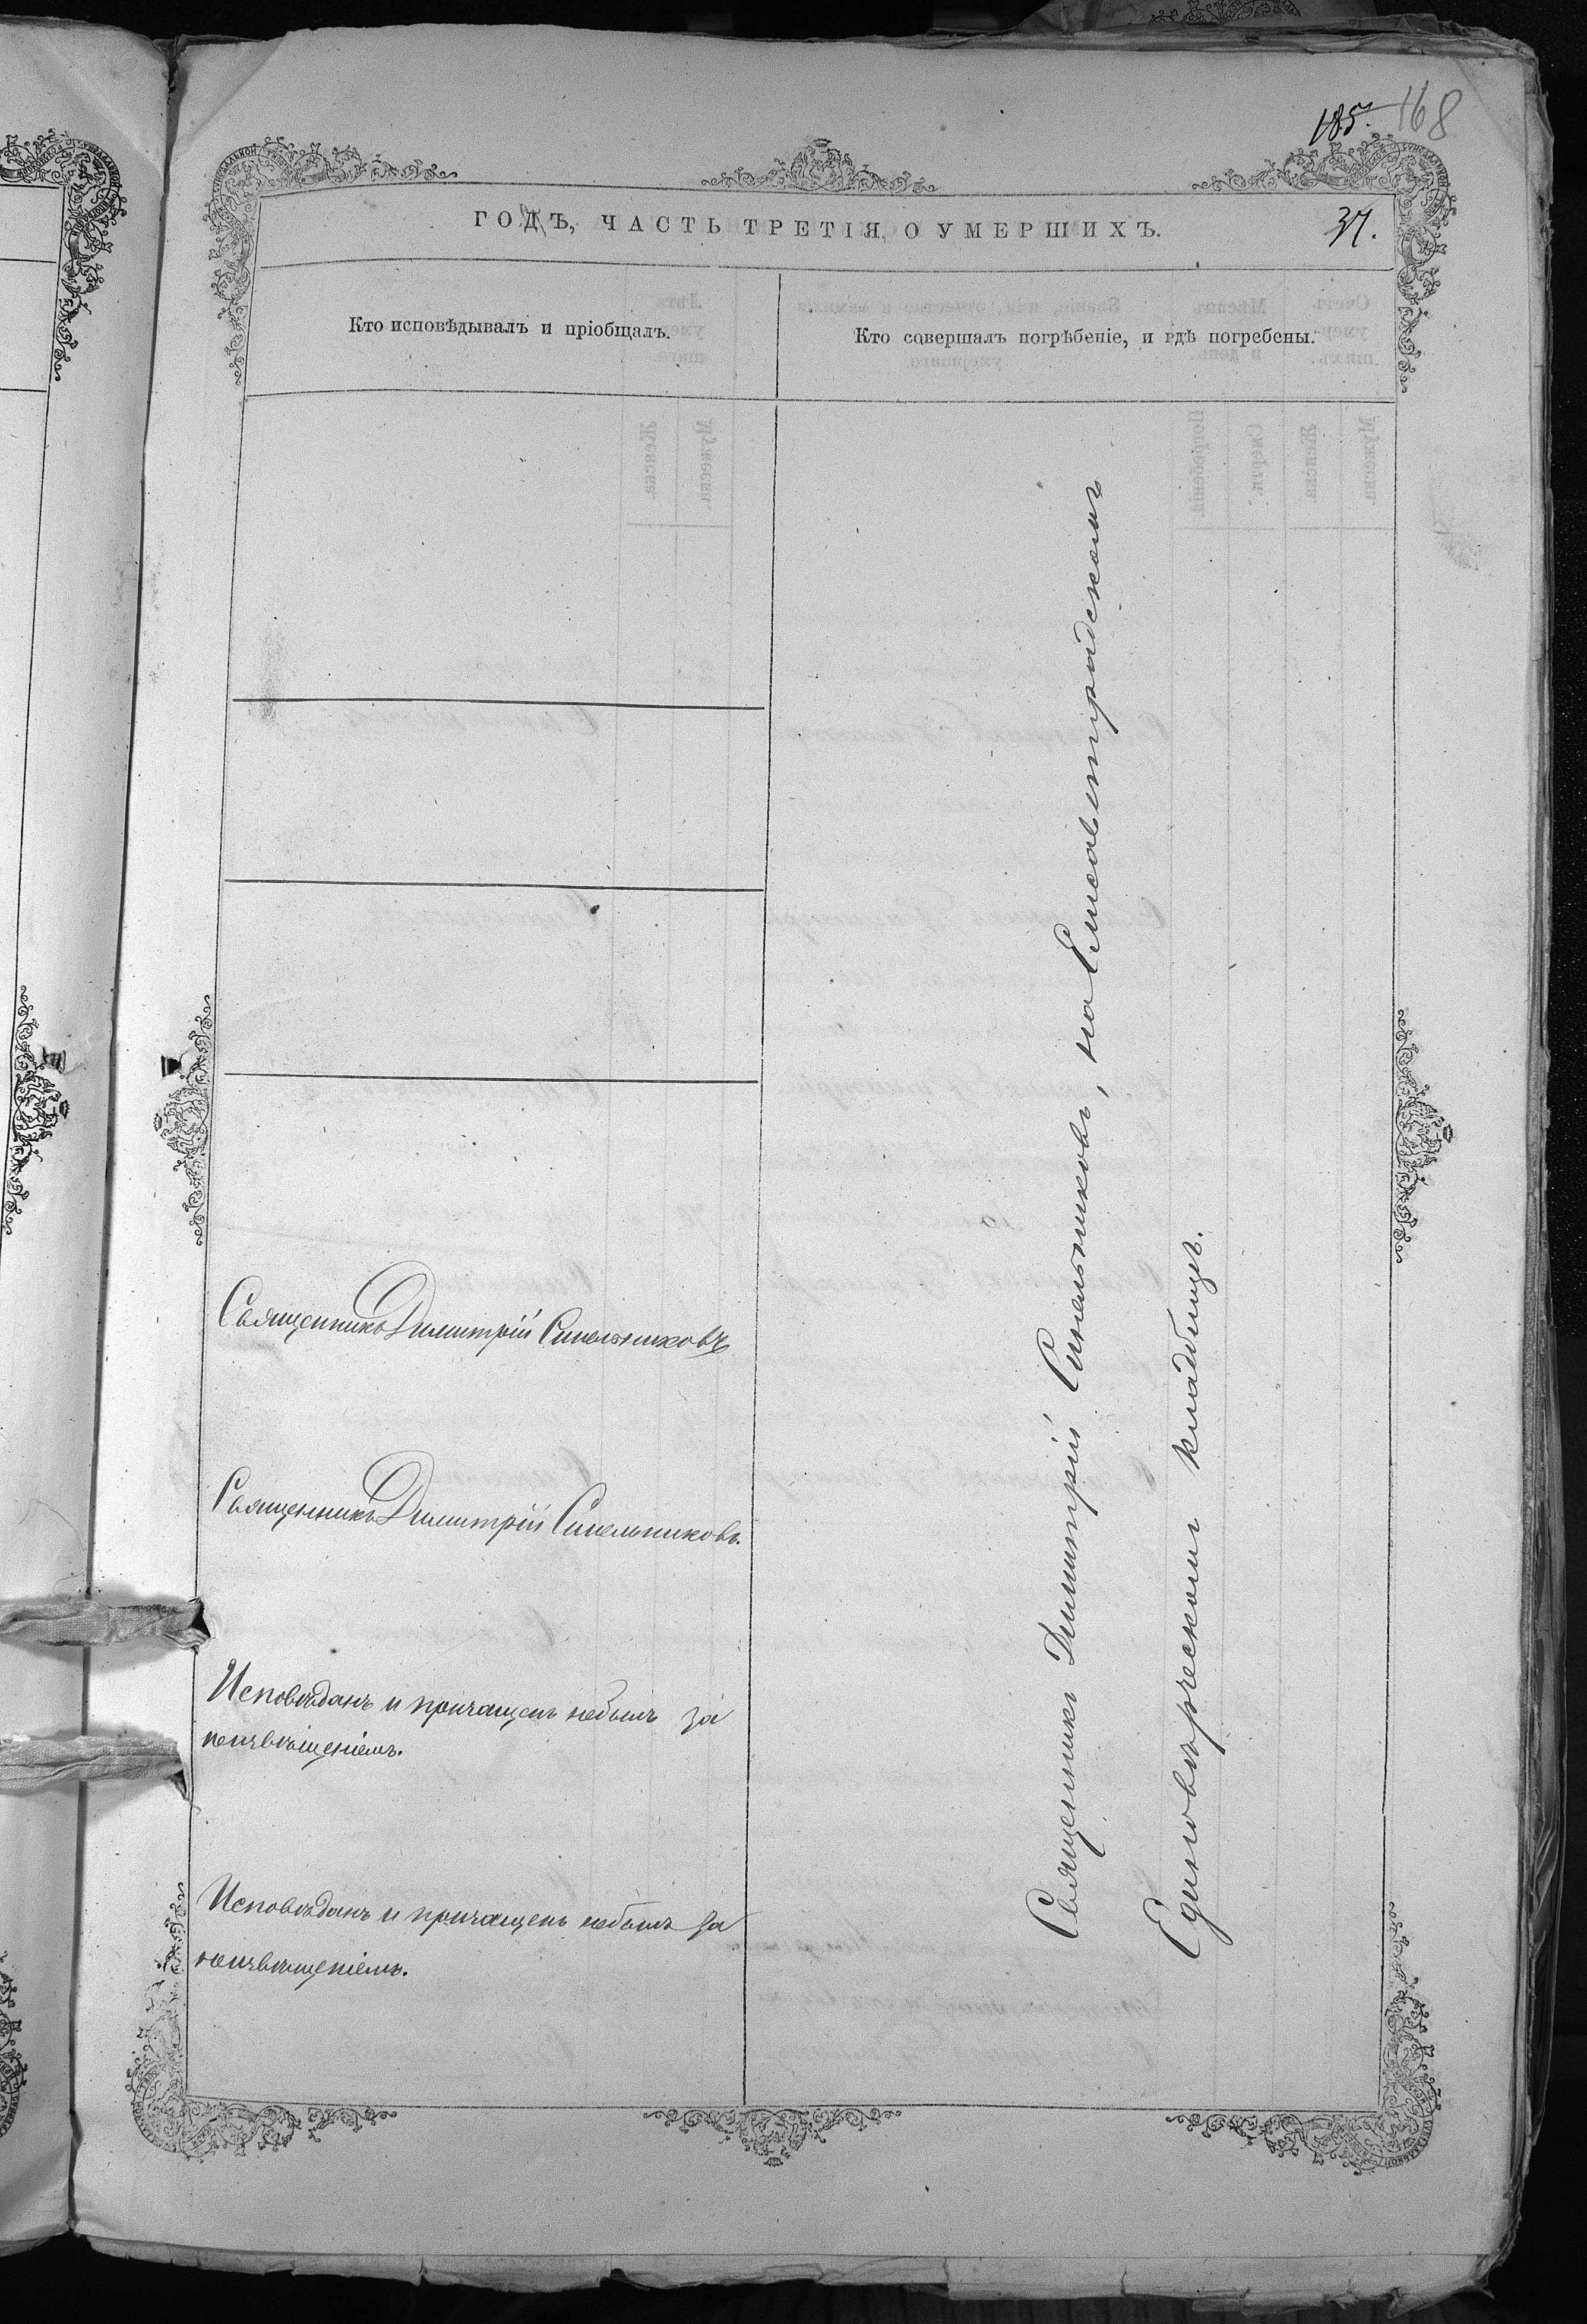 185. 168
ГОДЪ, ЧАСТЬ ТРЕТІЯ, О УМЕРШИХЪ. 37.
Кто исповѣдывалъ и пріобщалъ.
Кто совершалъ погрѣбеніе, и гдѣ погребены.
Священникъ Димитрій Синельниковъ
Священникъ Димитрій Синельниковъ.
Исповѣданъ и причащенъ небылъ за
неизвѣщеніемъ.
Исповѣданъ и причащенъ небылъ за
неизвѣщеніемъ.
Священникъ Димитрій Синельниковъ, на Елисаветградскомъ
Единовѣрческомъ кладбищѣ.